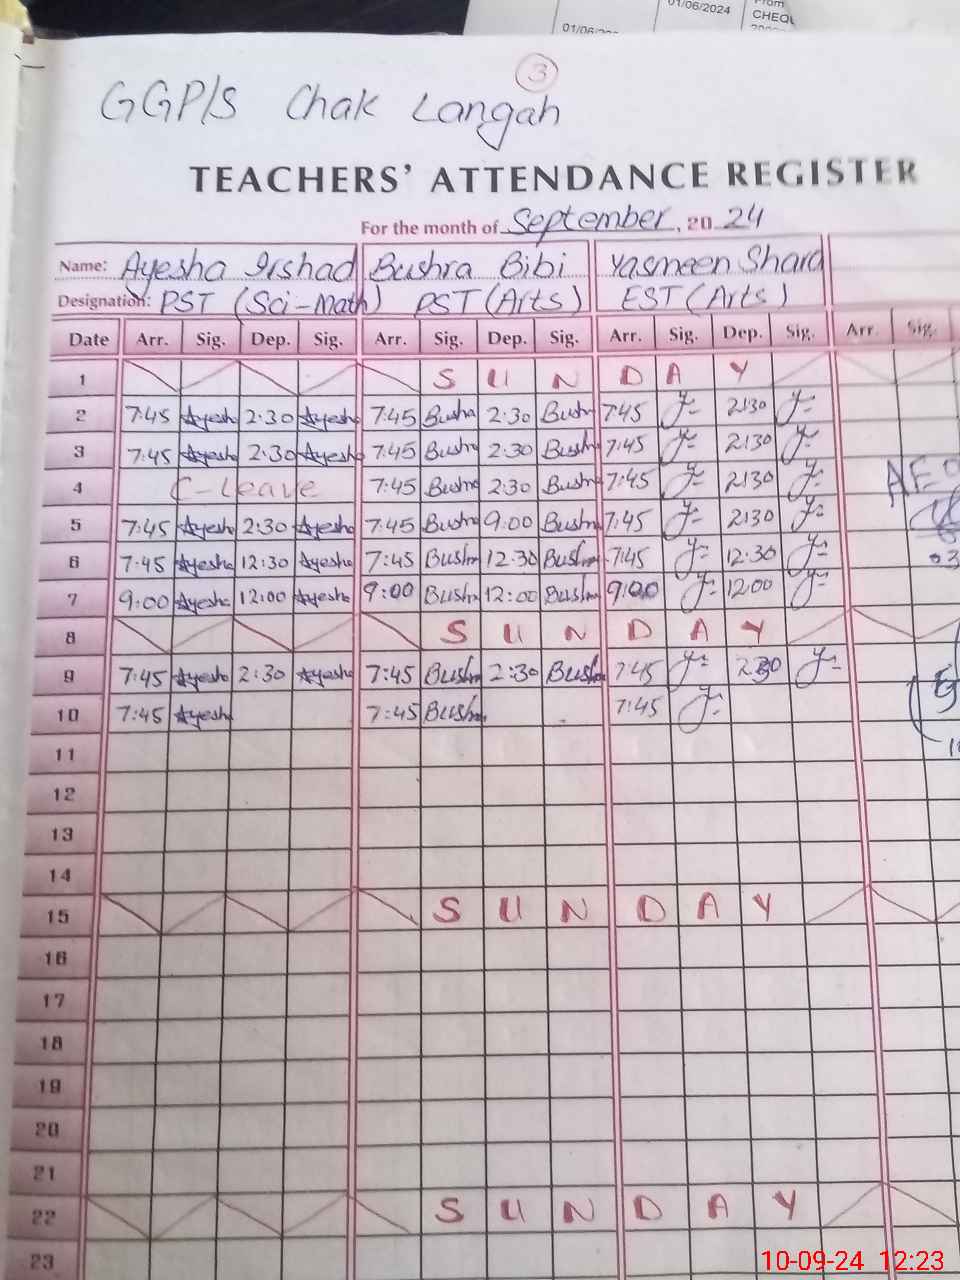 01/06/2024
CHEQU
3
GGP/S Chak Langah
TEACHERS' ATTENDANCE REGISTER
For the month of September, 2024
Name: Ayesha Irshad Bushra Bibi Yasmeen Shard
Designation: PST (Sci-Math) PST (Arts) EST (Arts)
Date Arr. Sig. Dep. Sig. Arr. Sig. Dep. Sig. Arr. Sig. Dep. Sig. Arr. Sig.
1 SUNDAY
2 7:45 Ayesha 2:30 Ayesha 7:45 Bushra 2:30 Bushra 7:45 2:30
3 7:45 Ayesha 2:30 Ayesha 7:45 Bushra 2:30 Bushra 7:45 2:30
4 C-Leave 7:45 Bushra 2:30 Bushra 7:45 2:30
5 7:45 Ayesha 2:30 Ayesha 7:45 Bushra 9:00 Bushra 7:45 2:30
6 7:45 Ayesha 12:30 Ayesha 7:45 Bushra 12:30 Bushra 7:45 12:30
7 9:00 Ayesha 12:00 Ayesha 9:00 Bushra 12:00 Bushra 9:00 12:00
8 SUNDAY
9 7:45 Ayesha 2:30 Ayesha 7:45 Bushra 2:30 Bushra 7:45 2:30
10 7:45 Ayesha 7:45 Bushra 7:45
11
12
13
14
15 SUNDAY
16
17
18
19
20
21
22 SUNDAY
23
10-09-24 12:23